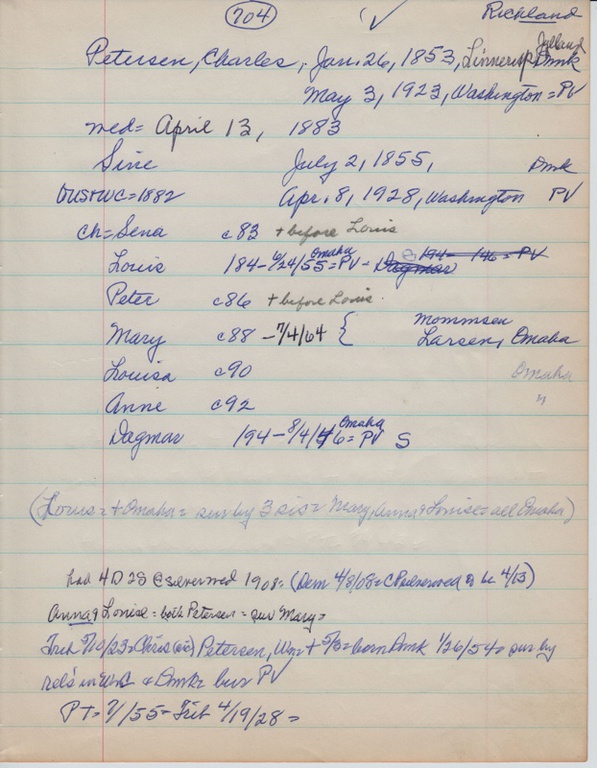 704 ✓ Richland
Petersen, Charles, Jan. 26, 1853, Linnerup Jylland Dmk
May 3, 1923, Washington = PV
med = April 13, 1883
Sine July 2, 1855, Dmk
WC = 1882 Apr. 8, 1928, Washington PV
ch = Sena c83 + before Louis
Louis 184 - 6/24/55 = Omaha PV - Dagmar 194 - 146 = PV
Peter c86 + before Louis.
Mary c88 - 7/4/64 { Mommsen
Larsen, Omaha
Louisa c90 Omaha
Anne c92 "
Dagmar 194 - 8/4/46 = Omaha PV S
(Louis = + Omaha = sur by 3 sis = Mary, Anna & Louise = all Omaha)
had 4D 2S @ silver wed 1908 = (Dem 4/3/08 = CP silver wed to be 4/13)
Anna & Louise = both Petersen = sur Mary =
Trib 5/10/23 = Chris (sic) Petersen, Wn = + 5/3 = born Dmk 1/26/54 = sur by
rels in & Dmk = bur PV
PT = 7/55 = Trib 4/19/28 =